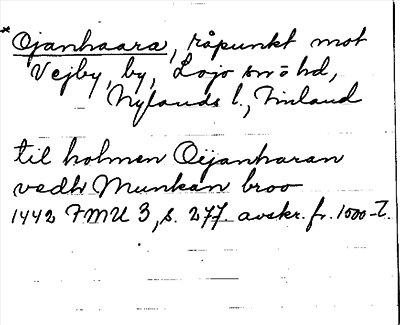 *Ojanhaara, råpunkt mot
Vejby, by, Lojo sn o hd,
Nylands l., Finland
til holmen Oijanharan
vedh Munkan broo
1442 FMU 3, s. 277. avskr. fr. 1500-t.